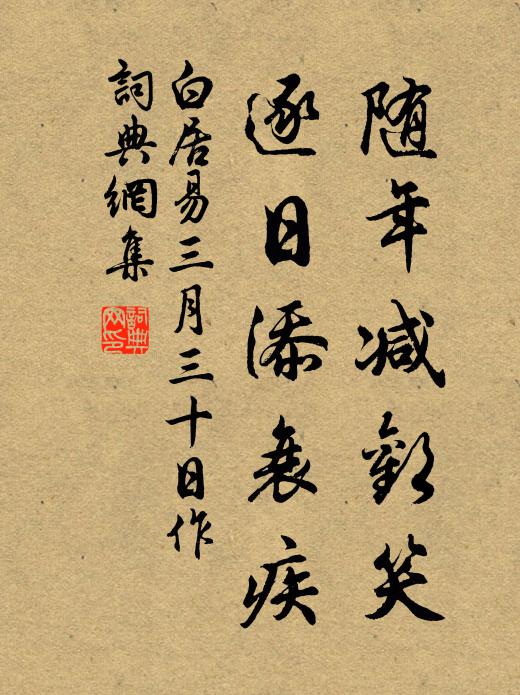 随年減歡笑
逐日添衰疾
白居易三月三十日作
詞典網集
詞典
网印